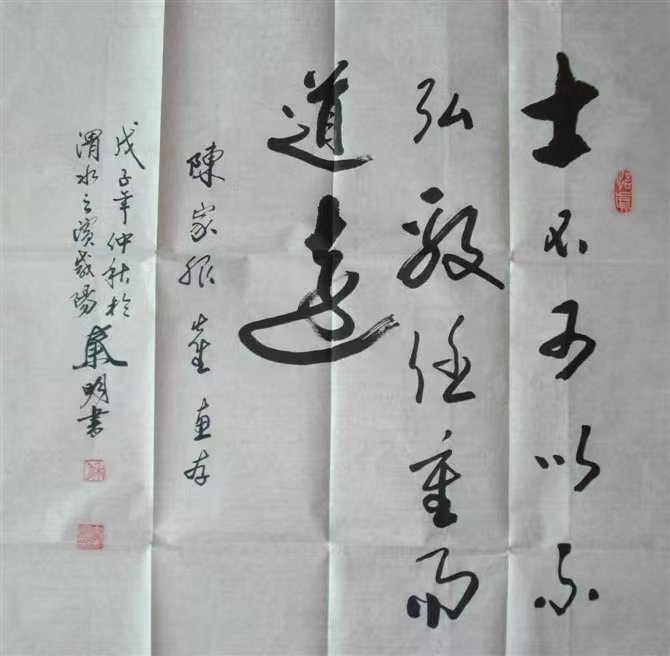 士不可以不
弘毅任重而
道远
陳家振 惠存
戊子年仲秋於
渭水之濱咸陽
東明書